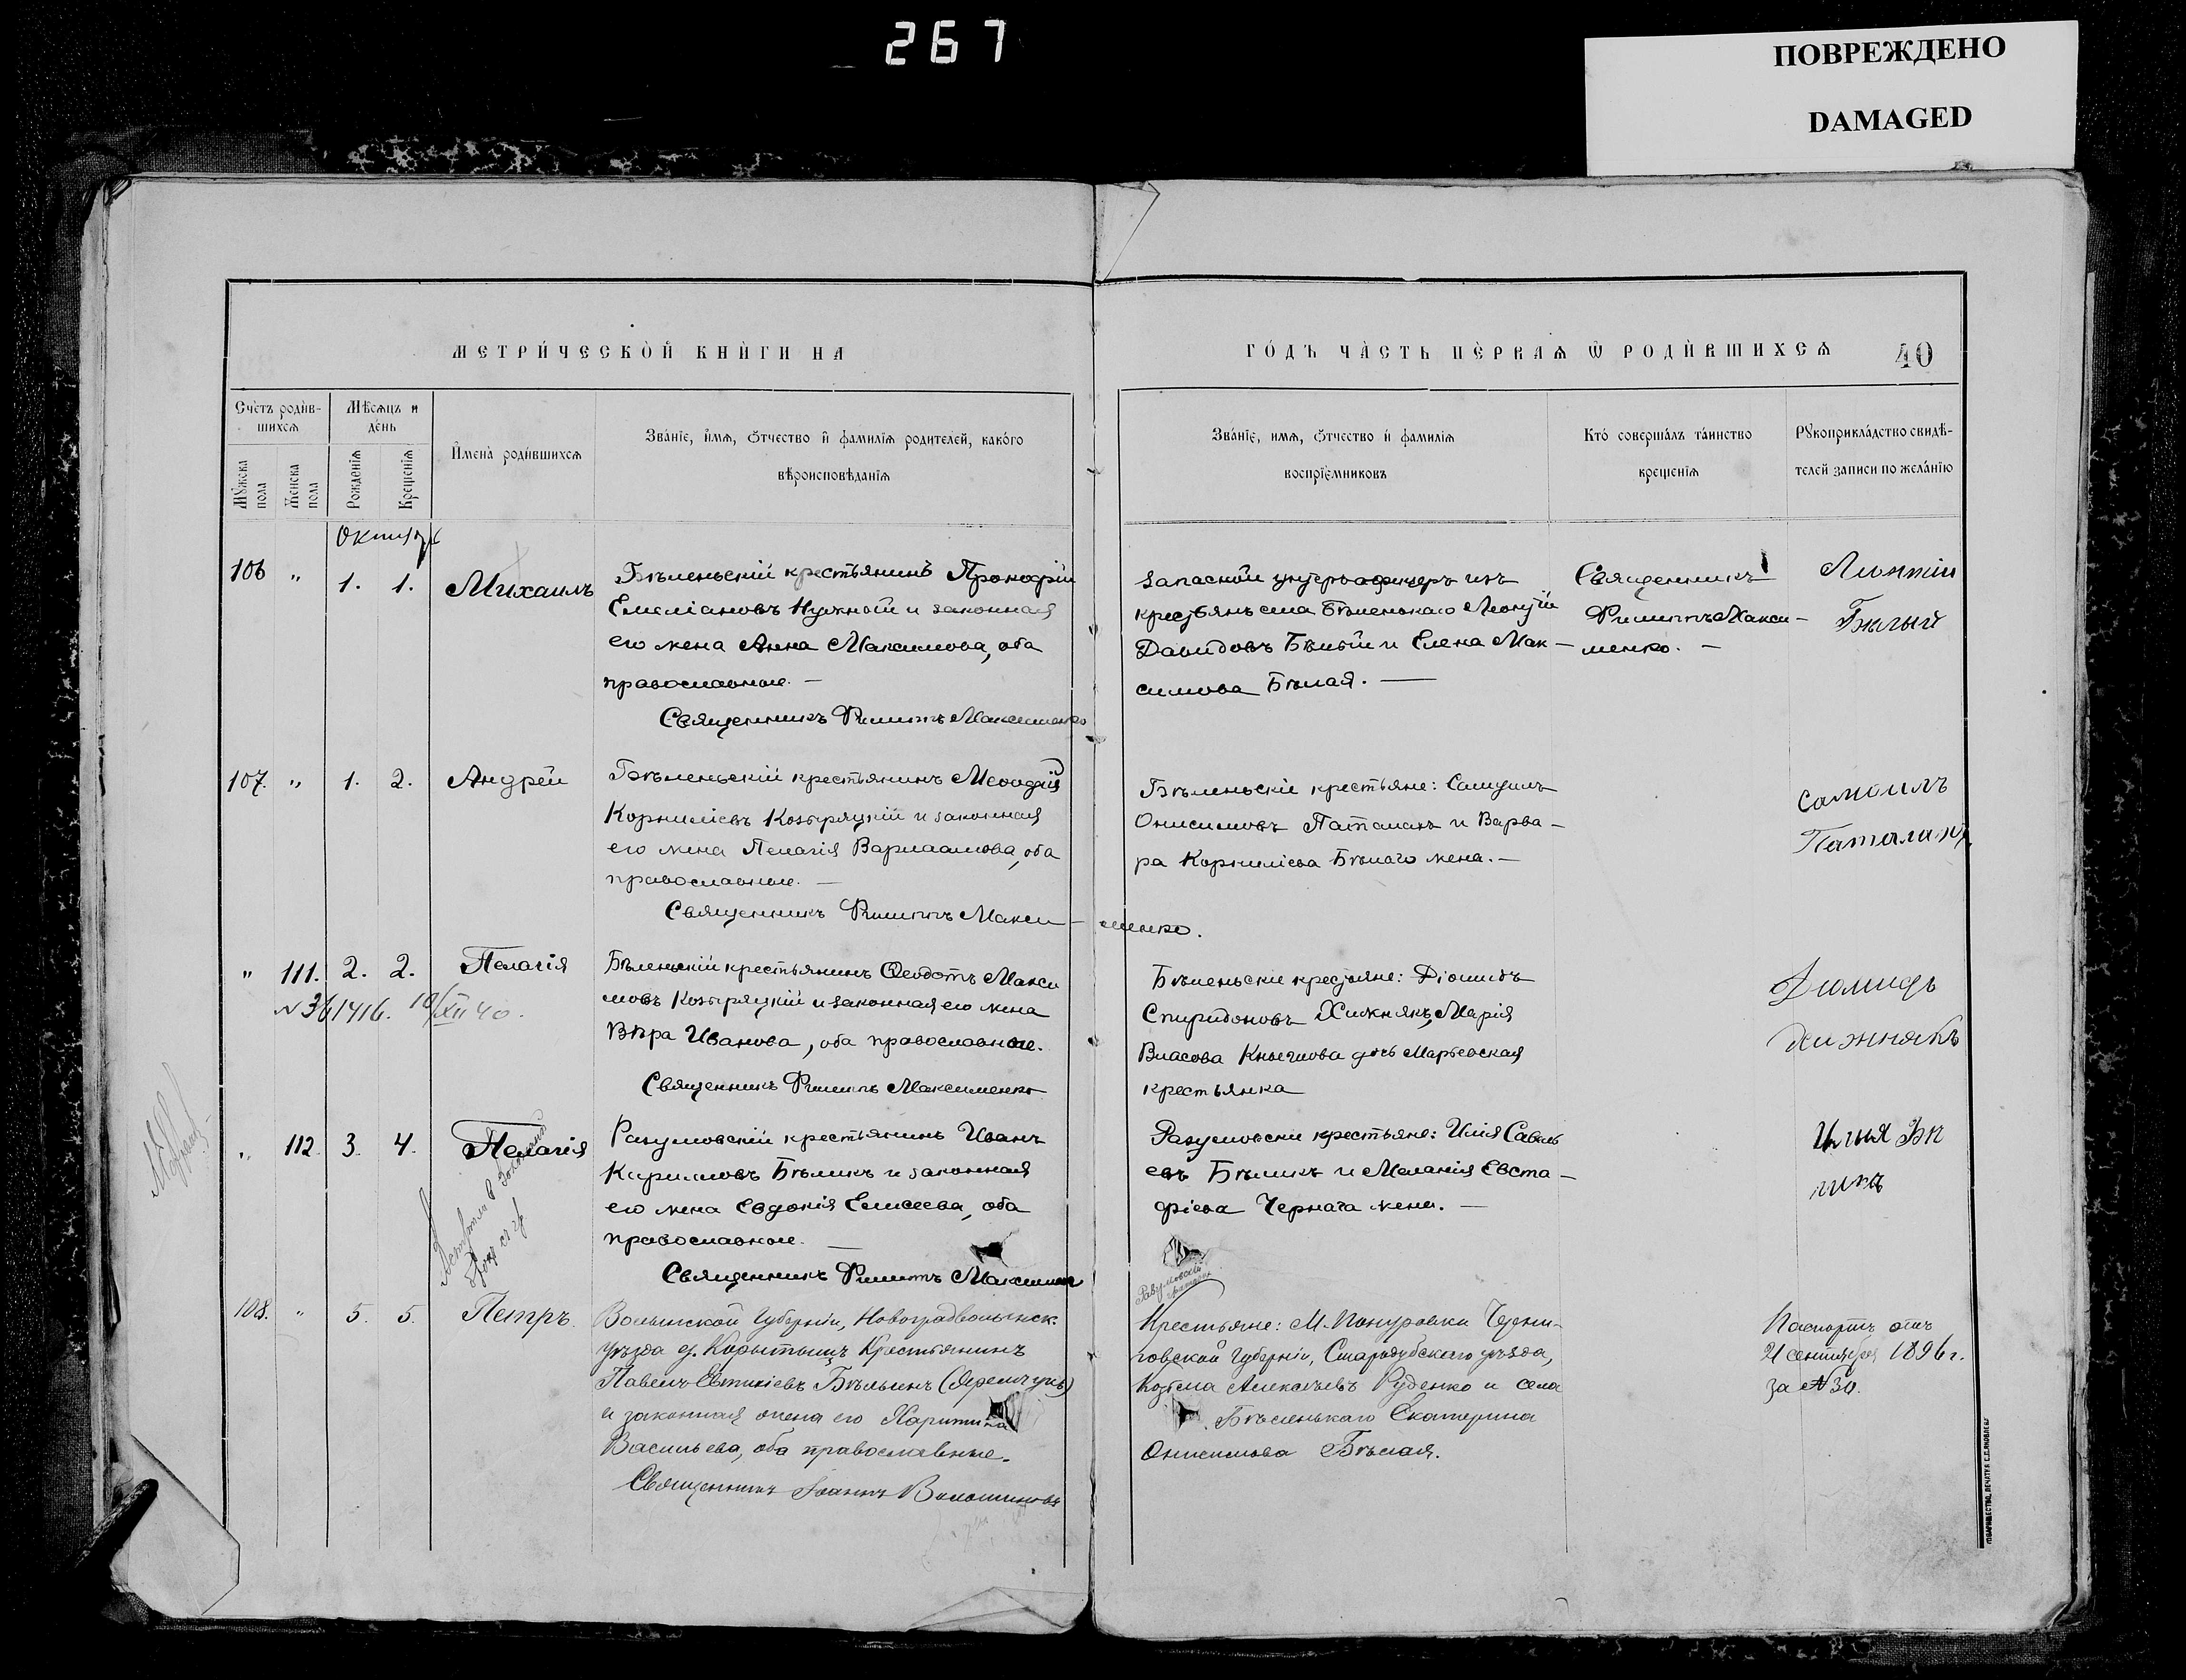 267
ПОВРЕЖДЕНО
DAMAGED
МЕТРИ́ЧЕСКОЙ КНИ́ГИ НА
ГО́ДЪ ЧА́СТЬ ПЕ́РВАѦ Ѡ РОДИ́ВШИХСѦ
40
Счетъ роди́в-
шихсѧ
Мѣсѧцъ и
де́нь
Мꙋ́жска
пола
Женска
пола
Рожденїѧ
Крещенїѧ
И҆мена̀ роди́вшихсѧ
Зва́нїе, и҆́мѧ, ѻ҆́тчество и҆ фамилїѧ родителей, како́го
вѣроисповѣданїѧ
Зва́нїе, имѧ, ѻ҆́тчество и҆ фамилїѧ
воспрїемниковъ
Кто̀ соверша́лъ та́инство
крещенїѧ
Рꙋкоприкла́дство свидѣ́-
телей записи по жела́нїю
106 " 1. 1. Михаилъ
Бѣленьскій крестьянинъ Прокофій
Емеліановъ Нужный и законная
его жена Анна Максимова, оба
православные. —
Священникъ Филиппъ Максименко
запасной унтеръ офицеръ изъ
крестьянъ села Бѣленькаго Леонтій
Давидовъ Бѣлый и Елена Мак-
симова Бѣлая. —
Священникъ
Филиппъ Макси-
менко. —
Лионтій
Билый
107. " 1. 2. Андрей
Бѣленьскій крестьянинъ Меѳодій
Корниліевъ Козыряцкій и законная
его жена Пелагія Варлаамова, оба
православные. —
Священникъ Филиппъ Макси-менко.
Бѣленьскіе крестьяне: Самуилъ
Онисимовъ Паталахъ и Варва-
ра Корниліева Бѣлаго жена. —
Самоилъ
Паталахъ
" 111. 2. 2. Пелагія
№ 361416. 10/XII 40.
Бѣленьскій крестьянинъ Ѳеодотъ Макси
мовъ Козыряцкій и законная его жена
Вѣра Иванова, оба православные.
Священникъ Филиппъ Максименко
Бѣленьскіе крестьяне: Діомидъ
Спиридоновъ Хижнякъ, Марія
Власова дочь Марьевская
крестьянка
Дюмидъ
Хижнякъ
" 112 3. 4. Пелагія
Разумовскій крестьянинъ Иванъ
Кириловъ Бѣликъ и законная
его жена Евдокія Елисеева, оба
православные. —
Священникъ Филиппъ Максименко
Разумовскіе крестьяне: Илія Савель
евъ Бѣликъ и Меланія Евста-
фіева Чернага жена. —
Илия Би
ликъ
108. " 5. 5. Петръ.
Волынской Губерніи, Новоградволынск.
уѣзда с. Корытыщъ Крестьянинъ
Павелъ Евтихіевъ Бѣльчинъ (Яремчукъ)
и законная жена его Харитина
Васильева, оба православные.
Священникъ Іоаннъ Волошиновъ
Крестьяне: М. Понуровки Черни-
говской Губерніи, Стародубскаго уѣзда,
Козьма Алексѣевъ Руденко и села
Бѣленькаго Екатерина
Онисимова Бѣлая.
Паспортъ отъ
21 сентября 1896 г.
за № 30.